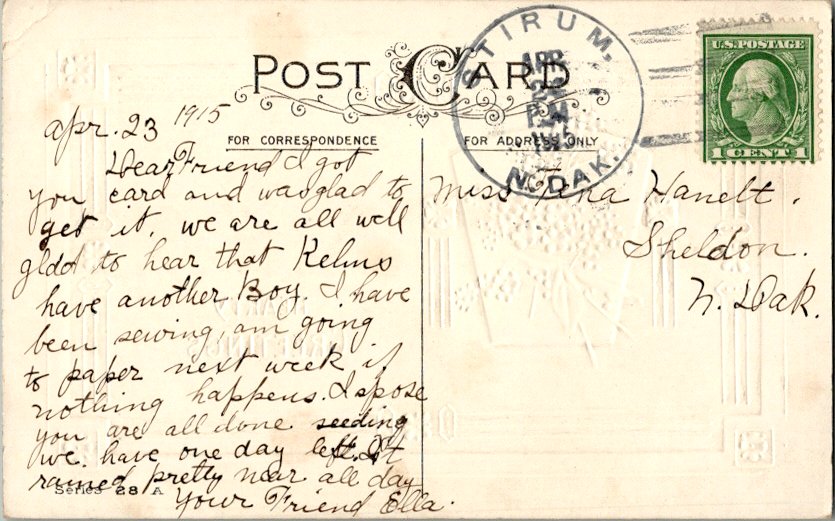 POST CARD
FOR CORRESPONDENCE
FOR ADDRESS ONLY
STIRUM,
APR
1915
N. DAK.
U.S. POSTAGE
1 CENT 1
Apr. 23 1915
Dear Friend I got
you card and was glad to
get it. we are all well
glad to hear that Kelms
have another Boy. I have
been sewing, am going
to paper next week if
nothing happens. I spose
you are all done seeding
we have one day left. It
rained pretty near all day
Your Friend Ella.
Series 28 A
Miss Tena Hanelt.
Sheldon.
N. Dak.